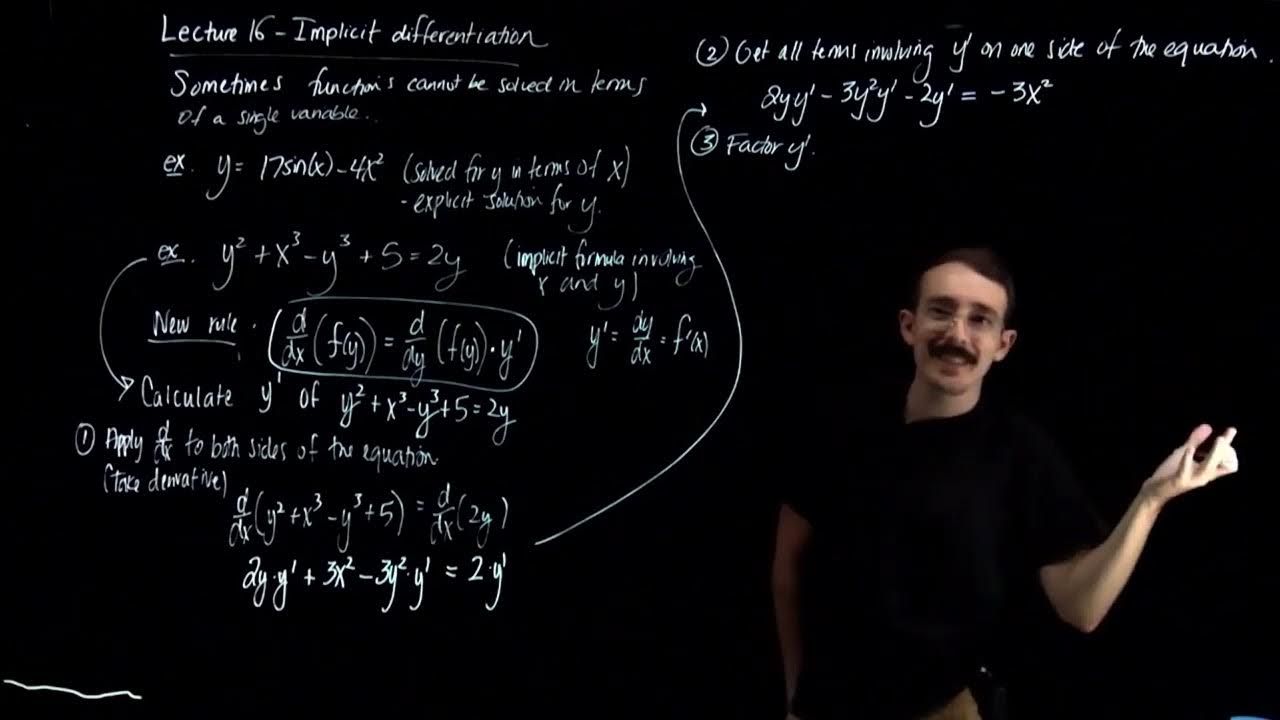 Lecture 16 - Implicit differentiation
Sometimes functions cannot be solved in terms
of a single variable.
ex. y = 17sin(x) - 4x² (solved for y in terms of x)
- explicit solution for y.
ex. y² + x³ - y³ + 5 = 2y (implicit formula involving
x and y)
New rule. d/dx (f(y)) = d/dy (f(y)) · y' y' = dy/dx = f'(x)
Calculate y' of y² + x³ - y³ + 5 = 2y
① Apply d/dx to both sides of the equation.
(take derivative)
d/dx (y² + x³ - y³ + 5) = d/dx (2y)
2y·y' + 3x² - 3y²·y' = 2·y'
② Get all terms involving y' on one side of the equation.
2yy' - 3y²y' - 2y' = -3x²
③ Factor y'.